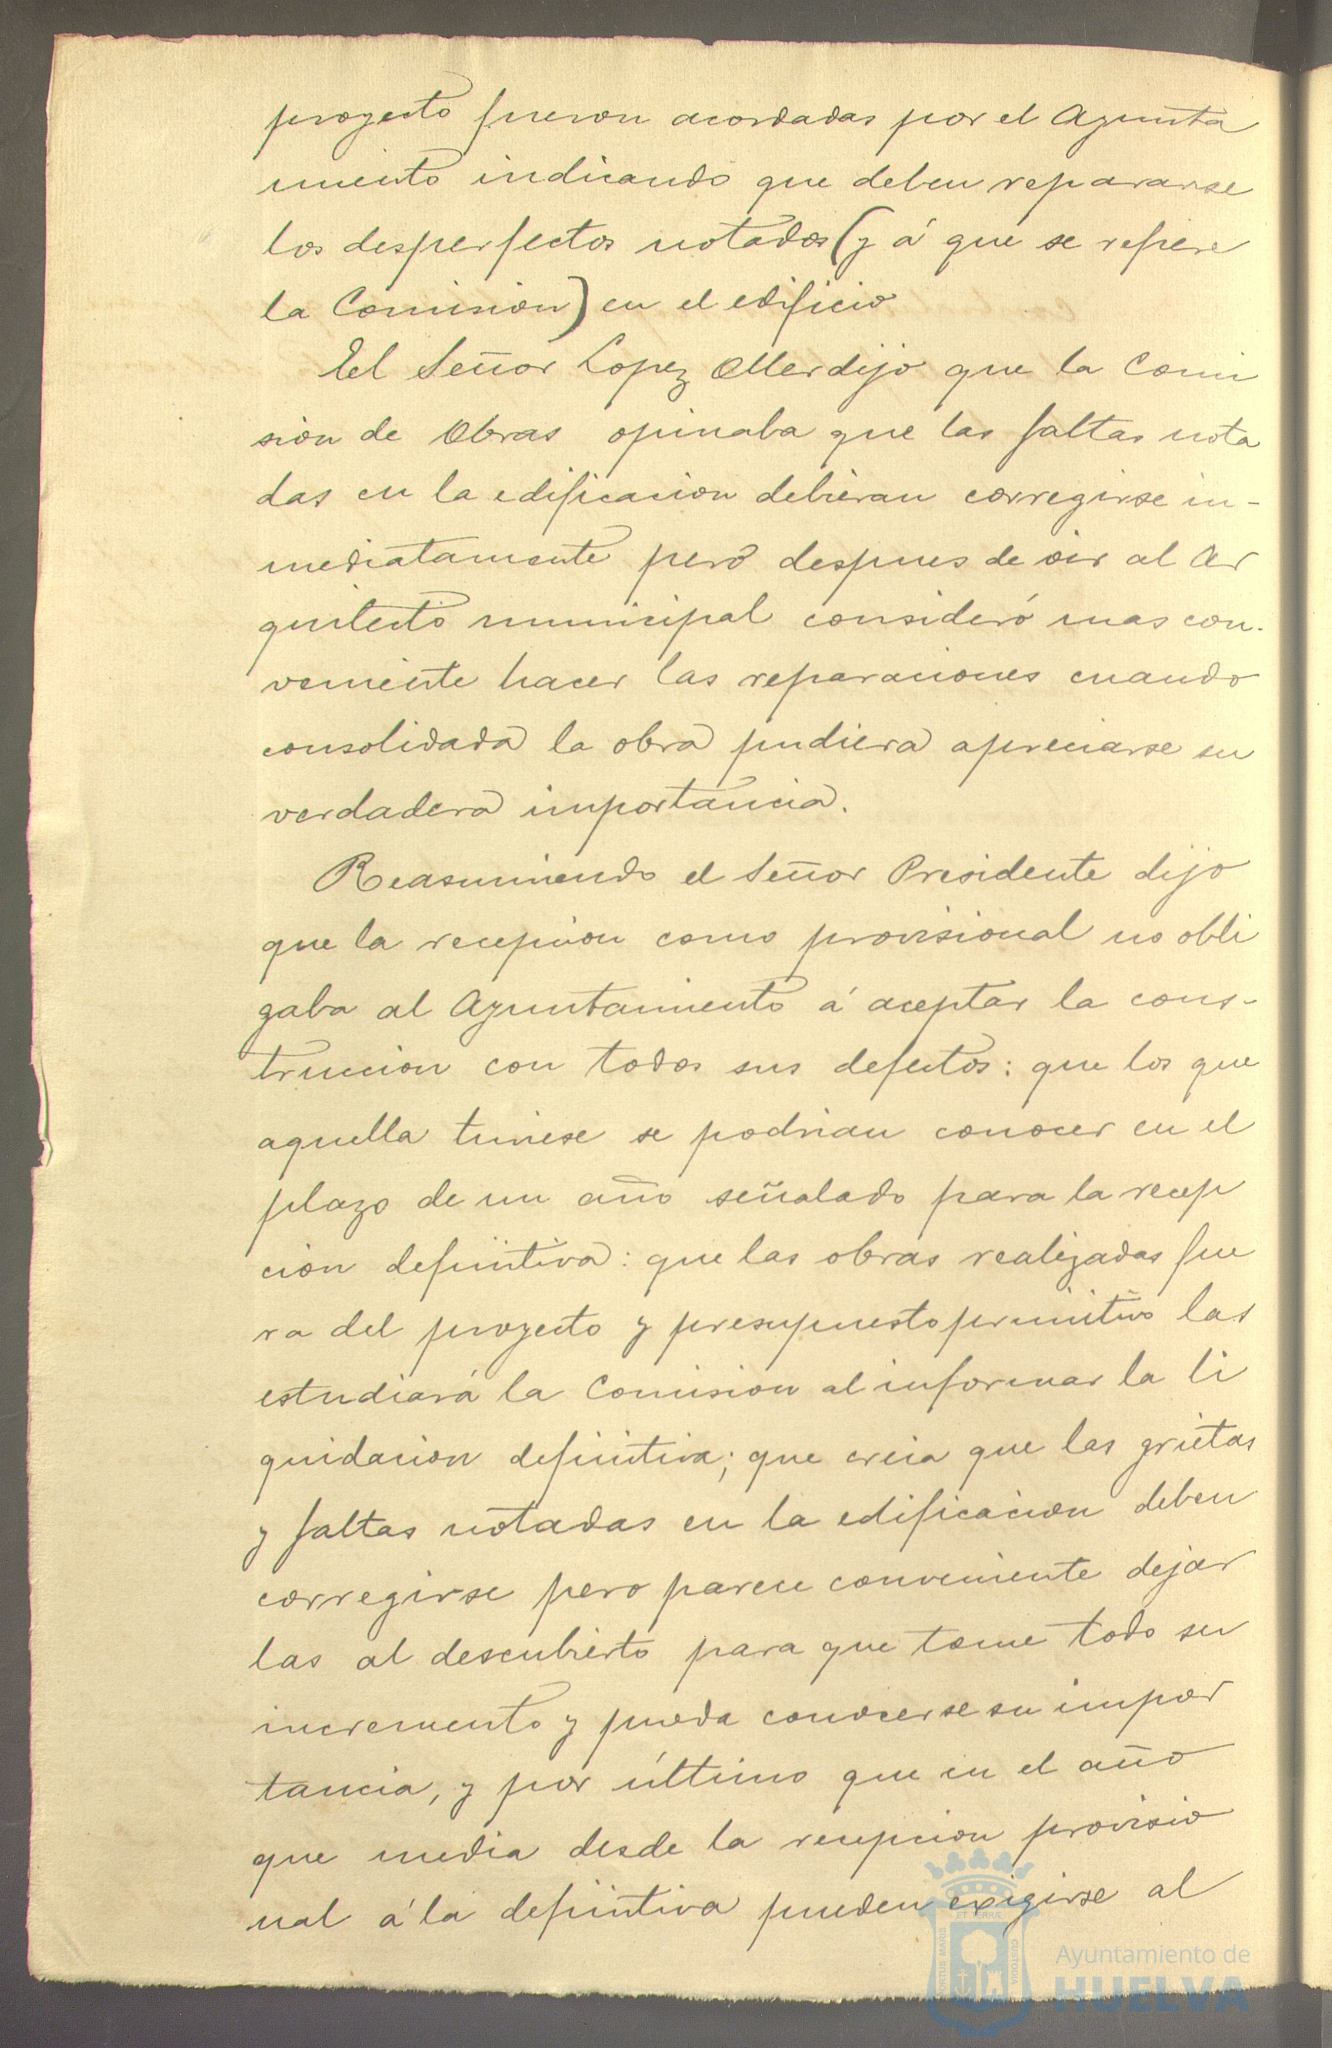 proyecto fueron acordadas por el Ayunta
miento indicando que deben repararse
los desperfectos notados (y á que se refiere
la Comision) en el edificio
El Señor Lopez Oller dijo que la Comi
sion de Obras opinaba que las faltas nota
das en la edificacion debieran corregirse in-
mediatamente pero despues de oir al Ar
quitecto municipal consideró mas con-
veniente hacer las reparaciones cuando
consolidada la obra pudiera apreciarse su
verdadera importancia.
Reasumiendo el Señor Presidente dijo
que la recepcion como provisional no obli
gaba al Ayuntamiento á aceptar la cons-
truccion con todos sus defectos: que los que
aquella tuviese se podrian conocer en el
plazo de un año señalado para la recep
cion definitiva: que las obras realizadas fue
ra del proyecto y presupuesto primitivo las
estudiará la Comision al informar la li
quidacion definitiva; que creia que las grietas
y faltas notadas en la edificacion deben
corregirse pero parece conveniente dejar
las al descubierto para que tome todo su
incremento y pueda conocerse su impor
tancia, y por último que en el año
que media desde la recepcion provisio
nal á la definitiva pueden exigirse al
Ayuntamiento de
HUELVA